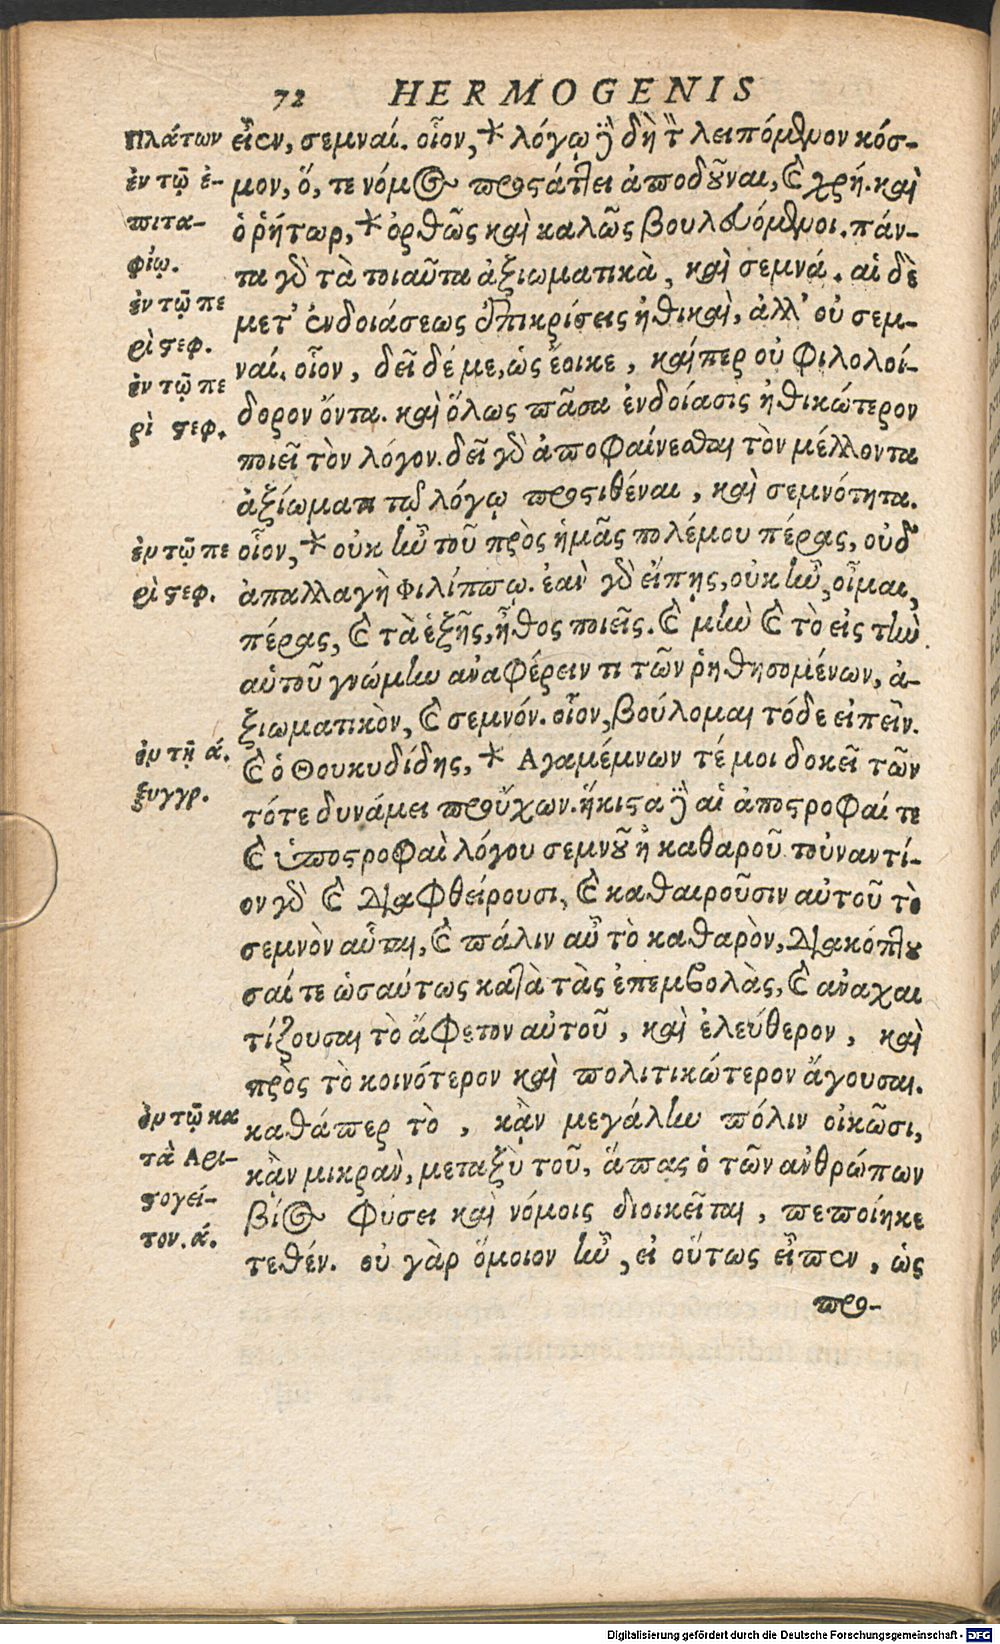 72 HERMOGENIS
Πλάτων
ἐν τῷ ἐ-
πιτα-
φίῳ.
ἐν τῷ πε
ρὶ στεφ.
ἐν τῷ πε
ρὶ στεφ.
ἐν τῷ πε
ρὶ στεφ.
ἐν τῇ ά.
ξυγγρ.
ἐν τῷ κα
τὰ Αρι-
στογεί-
τον. ά.
εἰσιν, σεμναί. οἷον, * λόγῳ δὲ δὴ τὸν λειπόμενον κόσ-
μον, ὅ, τε νόμος προστάττει ἀποδοῦναι, καὶ χρή. καὶ
ὁ ῥήτωρ, * ὀρθῶς καὶ καλῶς βουλευόμενοι. πάν-
τα γὰρ τὰ τοιαῦτα ἀξιωματικὰ, καὶ σεμνά. αἱ δὲ
μετ' ἐνδοιάσεως ἐπικρίσεις ἠθικαὶ, ἀλλ' οὐ σεμ-
ναί. οἷον, δεῖ δέ με, ὡς ἔοικε, καίπερ οὐ φιλολοί-
δορον ὄντα. καὶ ὅλως πᾶσα ἐνδοίασις ἠθικώτερον
ποιεῖ τὸν λόγον. δεῖ γὰρ ἀποφαίνεσθαι τὸν μέλλοντα
ἀξίωμά τι τῷ λόγῳ προστιθέναι, καὶ σεμνότητα.
οἷον, * οὐκ ἦν τοῦ πρὸς ἡμᾶς πολέμου πέρας, οὐδ'
ἀπαλλαγὴ Φιλίππῳ. ἐὰν γὰρ εἴπῃς, οὐκ ἦν, οἶμαι,
πέρας, καὶ τὰ ἑξῆς, ἦθος ποιεῖς. καὶ μὴν καὶ τὸ εἰς τὴν
αὑτοῦ γνώμην ἀναφέρειν τι τῶν ῥηθησομένων, ἀ-
ξιωματικὸν, καὶ σεμνόν. οἷον, βούλομαι τόδε εἰπεῖν.
καὶ ὁ Θουκυδίδης, * Αγαμέμνων τέ μοι δοκεῖ τῶν
τότε δυνάμει προὔχων. ἥκιστα δὲ αἱ ἀποστροφαί τε
καὶ ὑποστροφαὶ λόγου σεμνοῦ ἢ καθαροῦ. τοὐναντί-
ον γὰρ καὶ διαφθείρουσι, καὶ καθαιροῦσιν αὐτοῦ τὸ
σεμνὸν αὗται, καὶ πάλιν αὖ τὸ καθαρὸν, διακόπτου
σαί τε ὡσαύτως κατὰ τὰς ἐπεμβολὰς, καὶ ἀναχαι
τίζουσαι τὸ ἄφετον αὐτοῦ, καὶ ἐλεύθερον, καὶ
πρὸς τὸ κοινότερον καὶ πολιτικώτερον ἄγουσαι.
καθάπερ τὸ, κἂν μεγάλην πόλιν οἰκῶσι,
κἂν μικρὰν, μεταξὺ τοῦ, ἅπας ὁ τῶν ἀνθρώπων
βίος φύσει καὶ νόμοις διοικεῖται, πεποίηκε
τεθέν. οὐ γὰρ ὅμοιον ἦν, εἰ οὕτως εἶπεν, ὡς
προ-
Digitalisierung gefördert durch die Deutsche Forschungsgemeinschaft - DFG